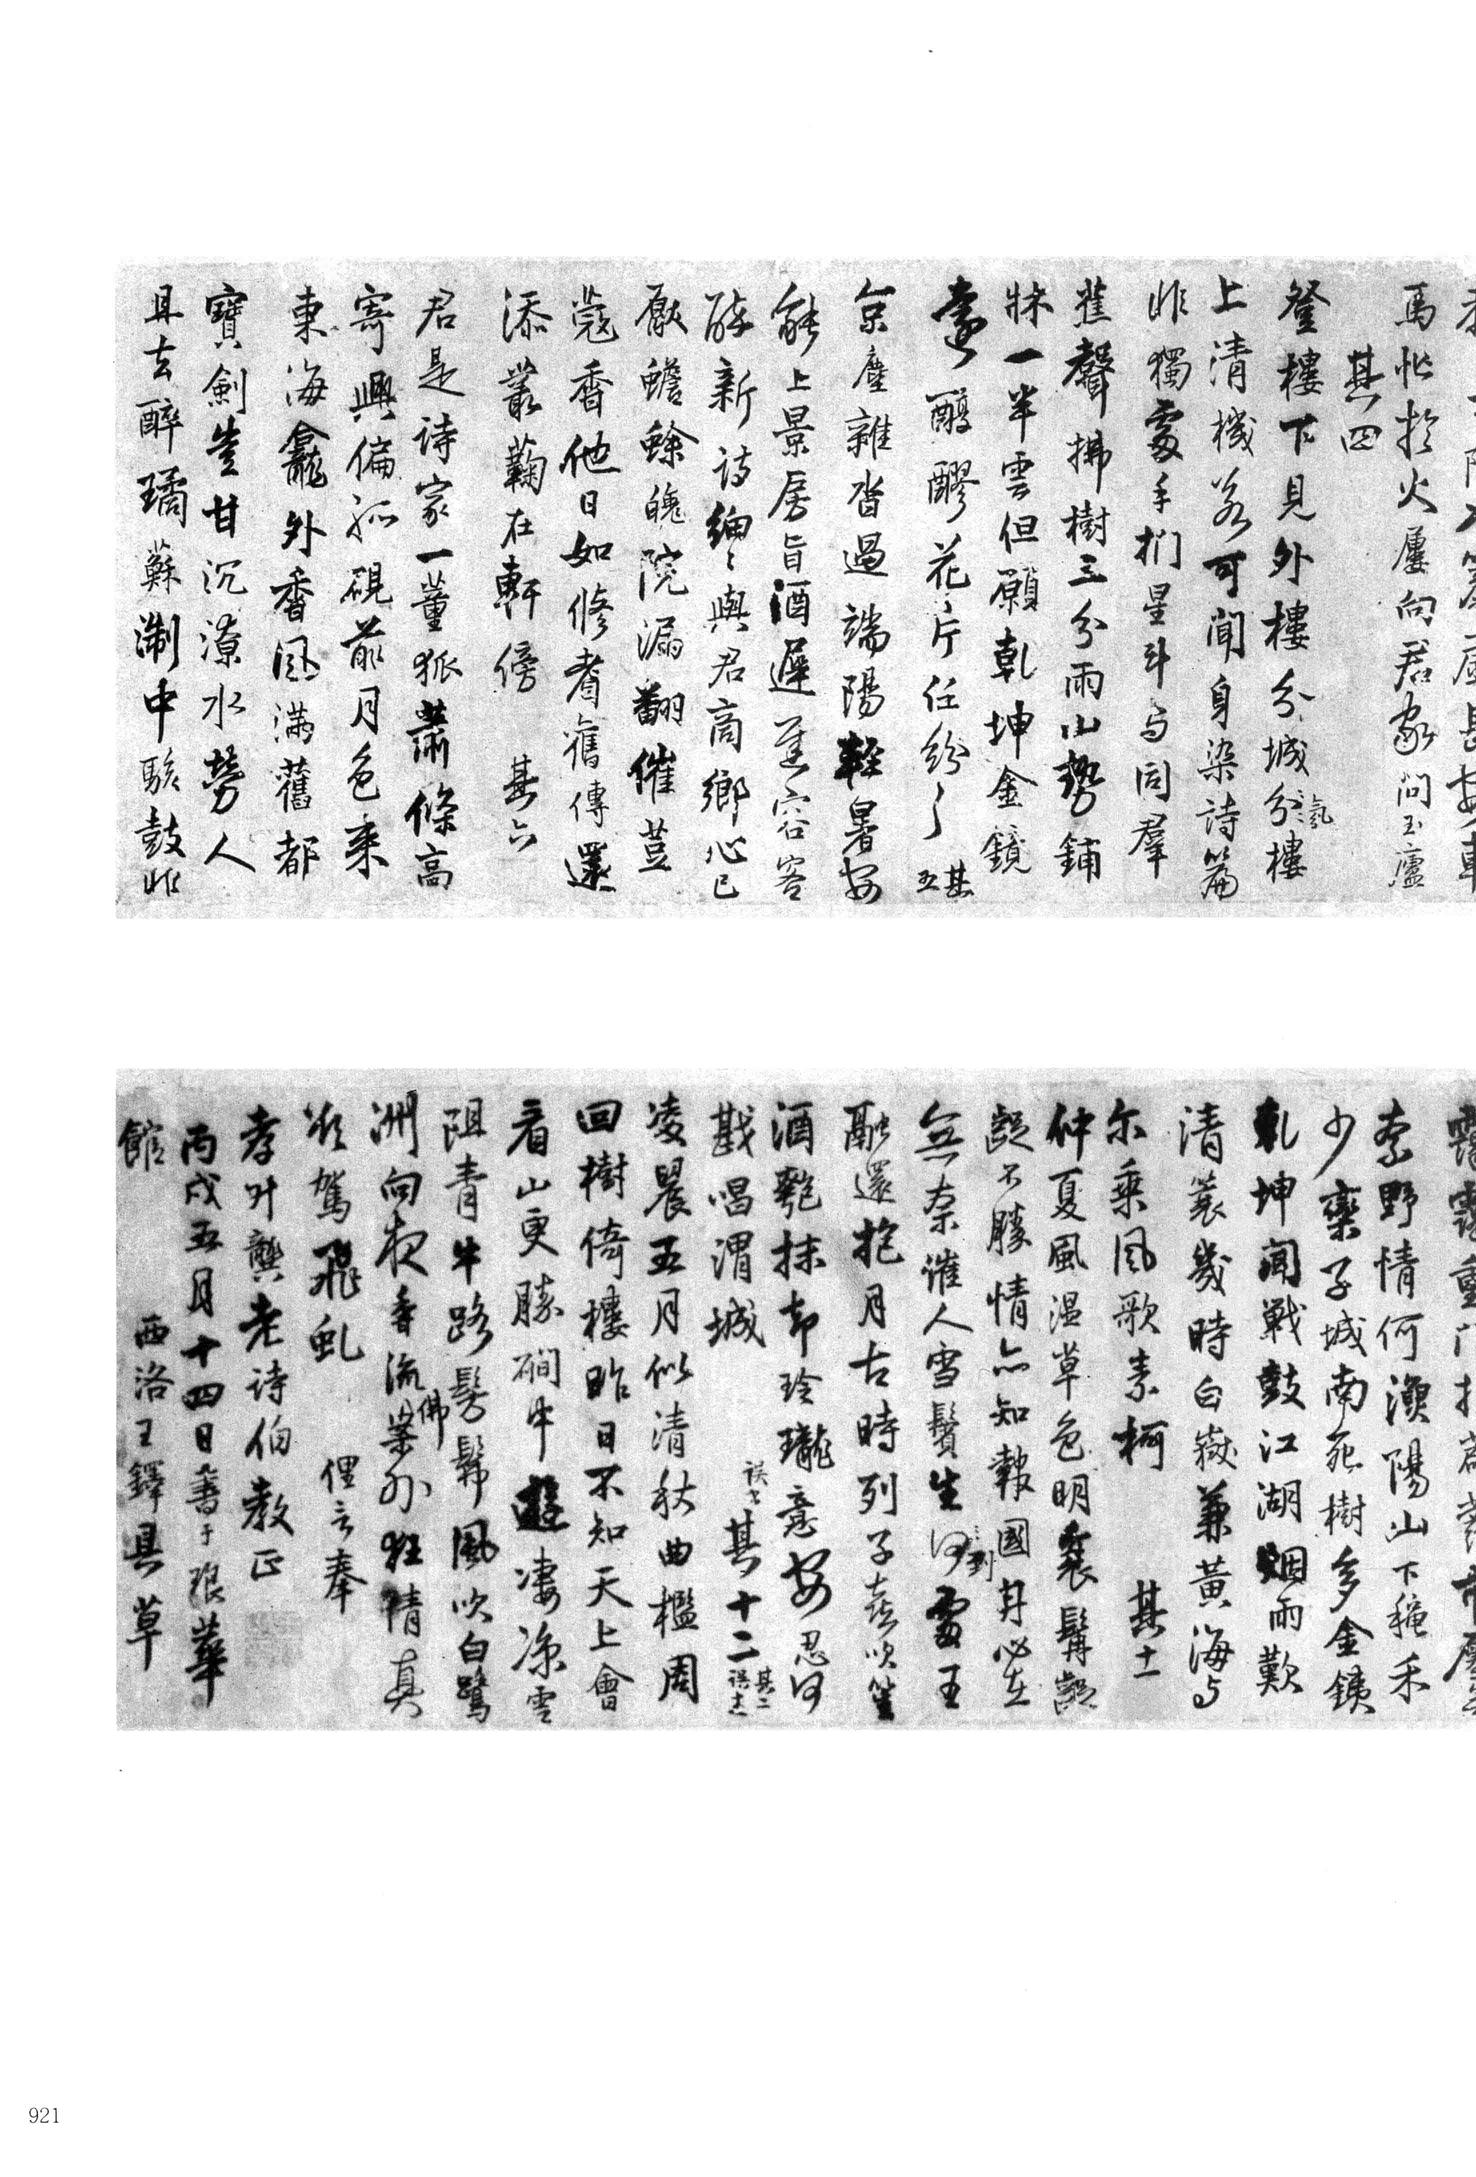 馬 於火屢向君家問玉廬
其四
登樓下見外樓分城分氣樓
上清機若可聞身染詩篇
非獨處手捫星斗与同羣
蕉聲拂樹三分雨山勢鋪
牀一半雲但願乾坤金鏡
 醇醪花片任紛 其五
京塵雜沓過端陽輕暑安
能上景房旨酒遲 容客
醉新詩細〻與君商鄉心已
厭蟾蜍魄院漏翻催荳
蔻香他日如修耆舊傳還
添叢菊在軒傍 其六
君是詩家一董狐蕭條高
寄興偏孤硯前月色來
東海龕外香風滿舊都
寶劍豈甘沉潦水勞人
且去醉 蘇制中駭鼓非
奈野情何濮陽山下 禾
少欒子城南死樹多金鏃
乾坤聞戰鼓江湖烟雨歎
清蓑幾時白嶽兼黃海与
尔乘風歌素柯 其十一
仲夏風温草色明 髯
 不勝情亦知報國身必在
無奈催人雪鬢生 處王
融還抱月古時列子喜吹笙
酒 抹却玲瓏意安忍
戲唱渭城 誤七 其十二
凌晨五月似清秋曲檻周
回樹倚樓昨日不知天上會
看山更勝磵中遊淒涼雲
阻青牛路髣髴風吹白鷺
洲向夜香流 佛外狂情真
欲駕飛虬 俚言奉
孝升龔老詩伯教正
丙戌五月十四日書于琅華
館 西洛王鐸具草
921